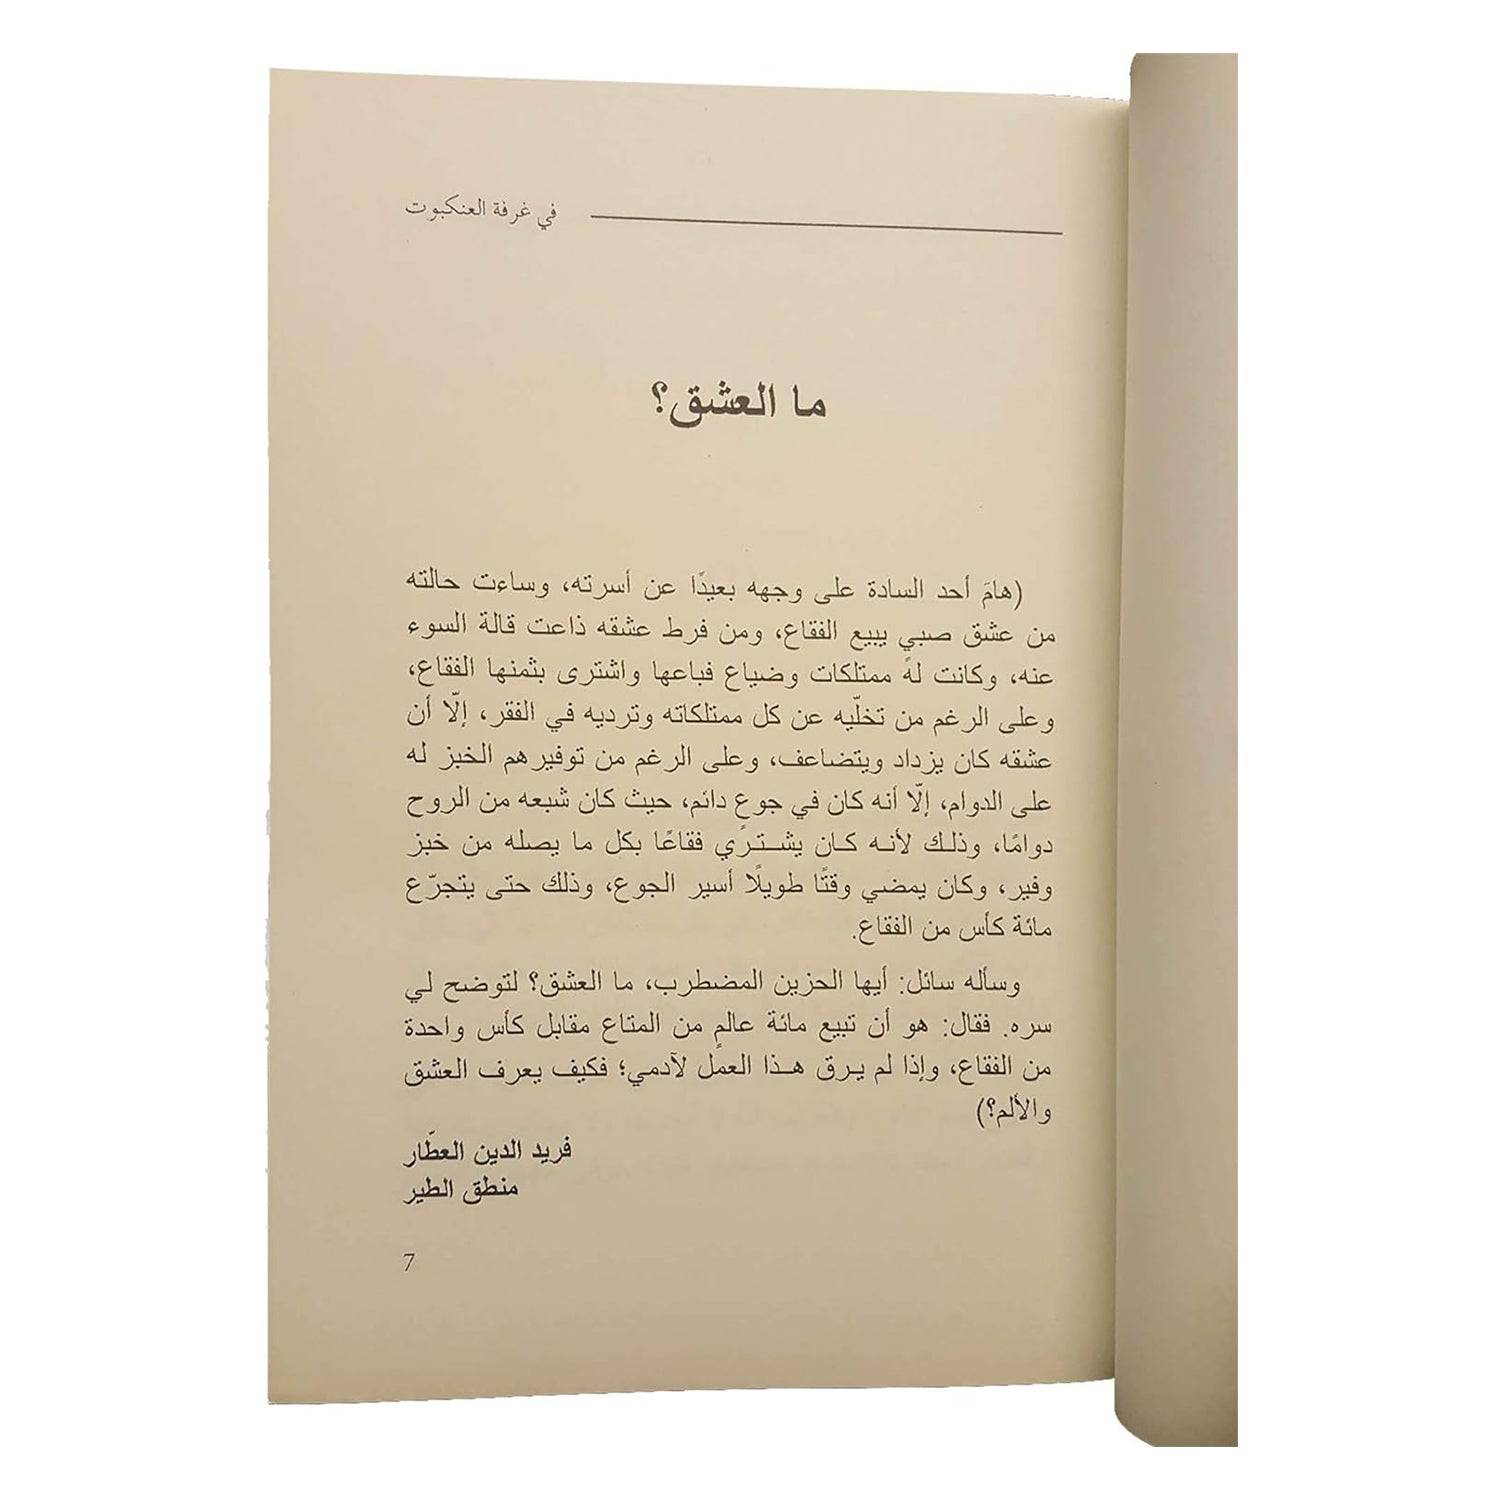 في غرفة العنكبوت
ما العشق؟
(هامَ أحد السادة على وجهه بعيدًا عن أسرته، وساءت حالته
من عشق صبي يبيع الفقاع، ومن فرط عشقه ذاعت قالة السوء
عنه، وكانت لهً ممتلكات وضياع فباعها واشترى بثمنها الفقاع،
وعلى الرغم من تخلّيه عن كل ممتلكاته وترديه في الفقر، إلّا أن
عشقه كان يزداد ويتضاعف، وعلى الرغم من توفيرهم الخبز له
على الدوام، إلّا أنه كان في جوعٍ دائم، حيث كان شبعه من الروح
دوامًا، وذلك لأنه كان يشتري فقاعًا بكل ما يصله من خبز
وفير، وكان يمضي وقتًا طويلًا أسير الجوع، وذلك حتى يتجرّع
مائة كأس من الفقاع.
وسأله سائل: أيها الحزين المضطرب، ما العشق؟ لتوضح لي
سره. فقال: هو أن تبيع مائة عالمٍ من المتاع مقابل كأس واحدة
من الفقاع، وإذا لم يرق هذا العمل لآدمي؛ فكيف يعرف العشق
والألم؟)
فريد الدين العطّار
منطق الطير
7